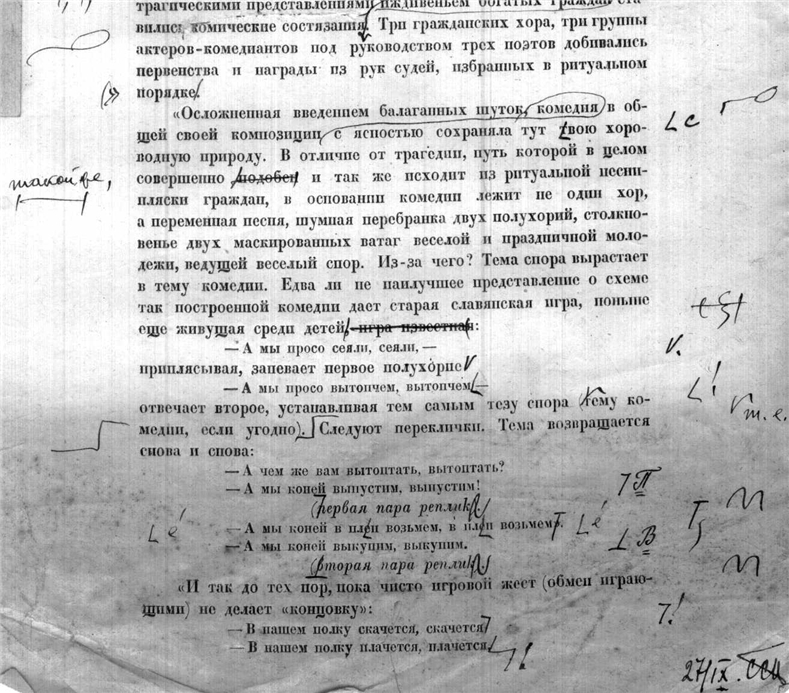 трагическими представлениями иждивеньем богатых граждан ста-
вились комические состязания. Три гражданских хора, три группы
актеров-комедиантов под руководством трех поэтов добивались
первенства и награды из рук судей, избранных в ритуальном
порядке.
«Осложненная введением балаганных шуток, комедия в об-
щей своей композиции с ясностью сохраняла тут свою хоро-
водную природу. В отличие от трагедии, путь которой в целом
такой же,
совершенно подобен и так же исходит из ритуальной песни-
пляски граждан, в основании комедии лежит не один хор,
а переменная песня, шумная перебранка двух полухорий, столкно-
венье двух маскированных ватаг веселой и праздничной моло-
дежи, ведущей веселый спор. Из-за чего? Тема спора вырастает
в тему комедии. Едва ли не наилучшее представление о схеме
так построенной комедии дает старая славянская игра, поныне
еще живущая среди детей, — игра известная:
— А мы просо сеяли, сеяли, —
приплясывая, запевает первое полухорие
— А мы просо вытопчем, вытопчем, —
отвечает второе, устанавливая тем самым тезу спора (тему ко-
т. е.
медии, если угодно). Следуют переклички. Тема возвращается
снова и снова:
— А чем же вам вытоптать, вытоптать?
— А мы коней выпустим, выпустим!
П
(первая пара реплик)
— А мы коней в плен возьмем, в плен возьмем.
é
é
— А мы коней выкупим, выкупим.
В
(вторая пара реплик)
«И так до тех пор, пока чисто игровой жест (обмен играю-
щими) не делает «концовку»:
— В нашем полку скачется, скачется,
— В нашем полку плачется, плачется.
27/IX.